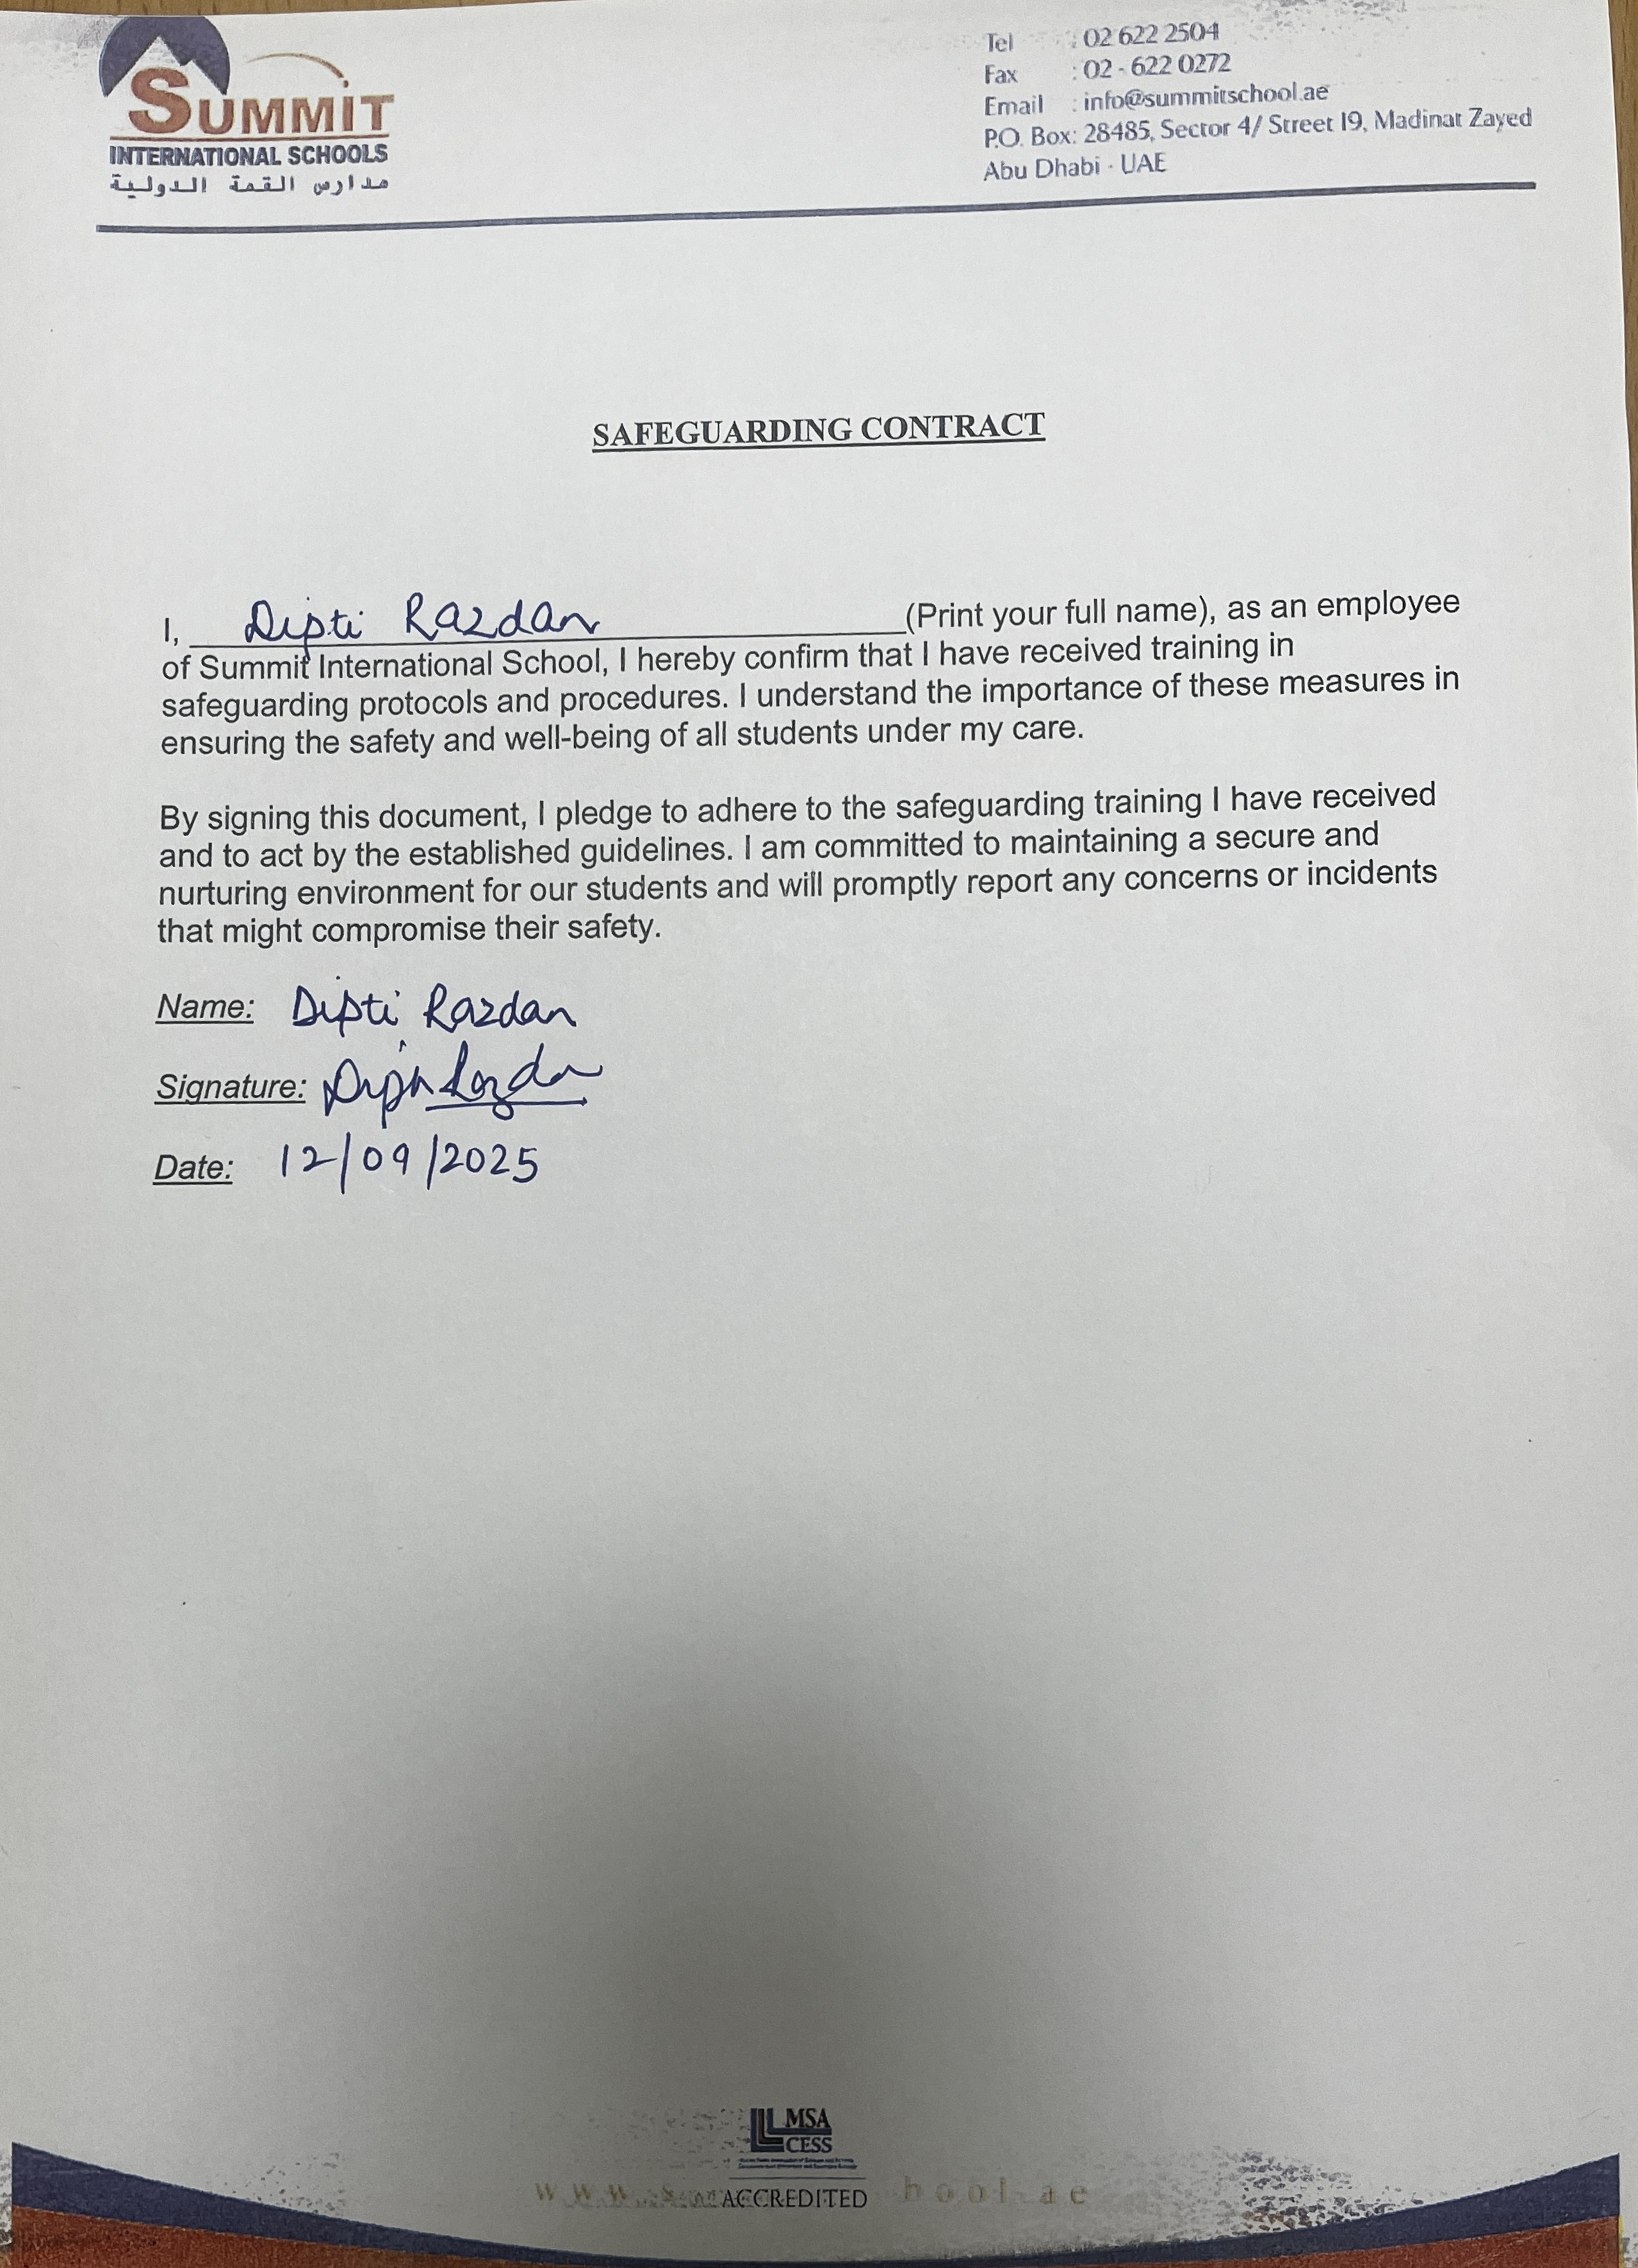 SUMMIT
INTERNATIONAL SCHOOLS
مدارس القمة الدولية
Tel : 02 622 2504
Fax : 02 - 622 0272
Email : info@summitschool.ae
P.O. Box: 28485, Sector 4/ Street 19, Madinat Zayed
Abu Dhabi - UAE
SAFEGUARDING CONTRACT
I, Dipti Razdan (Print your full name), as an employee
of Summit International School, I hereby confirm that I have received training in
safeguarding protocols and procedures. I understand the importance of these measures in
ensuring the safety and well-being of all students under my care.
By signing this document, I pledge to adhere to the safeguarding training I have received
and to act by the established guidelines. I am committed to maintaining a secure and
nurturing environment for our students and will promptly report any concerns or incidents
that might compromise their safety.
Name: Dipti Razdan
Signature: Dipti Razdan
Date: 12/09/2025
MSA
CESS
ACCREDITED